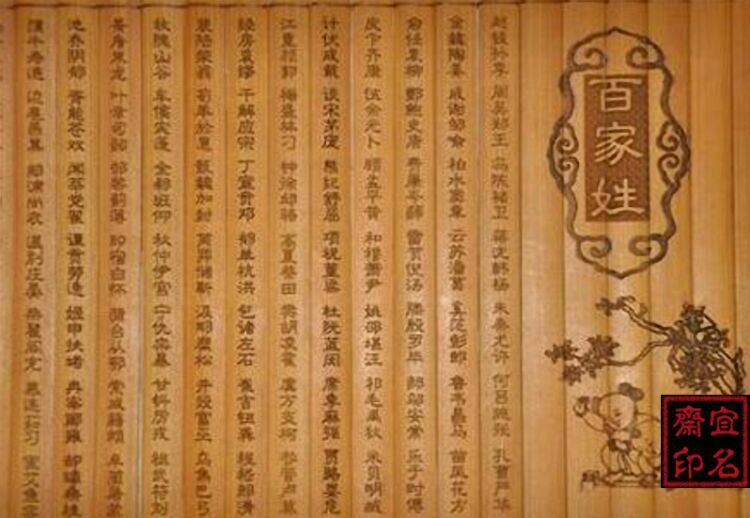 百家姓
赵钱孙李 周吴郑王 冯陈褚卫 蒋沈韩杨 朱秦尤许 何吕施张 孔曹严华
金魏陶姜 戚谢邹喻 柏水窦章 云苏潘葛 奚范彭郎 鲁韦昌马 苗凤花方
俞任袁柳 酆鲍史唐 费廉岑薛 雷贺倪汤 滕殷罗毕 郝邬安常 乐于时傅
皮卞齐康 伍余元卜 顾孟平黄 和穆萧尹 姚邵湛汪 祁毛禹狄 米贝明臧
计伏成戴 谈宋茅庞 熊纪舒屈 项祝董梁 杜阮蓝闵 席季麻强 贾路娄危
江童颜郭 梅盛林刁 钟徐邱骆 高夏蔡田 樊胡凌霍 虞万支柯 昝管卢莫
经房裘缪 干解应宗 丁宣贲邓 郁单杭洪 包诸左石 崔吉钮龚 程嵇邢滑
裴陆荣翁 荀羊於惠 甄加封 芮羿储靳 汲邴糜松 井段富巫 乌焦巴弓
牧隗山谷 车侯宓蓬 全郗班仰 秋仲伊宫 宁仇栾暴 甘钭厉戎 祖武符刘
景詹束龙 叶幸司韶 郜黎蓟薄 印宿白怀 蒲台从鄂 索咸籍赖 卓蔺屠蒙
池乔阴郁 胥能苍双 闻莘党翟 谭贡劳逄 姬申扶堵 冉宰郦雍 郤璩桑桂
濮牛寿通 边扈燕冀 郏浦尚农 温别庄晏 柴瞿阎充 慕连茹习 宦艾鱼容
宜名
齋印